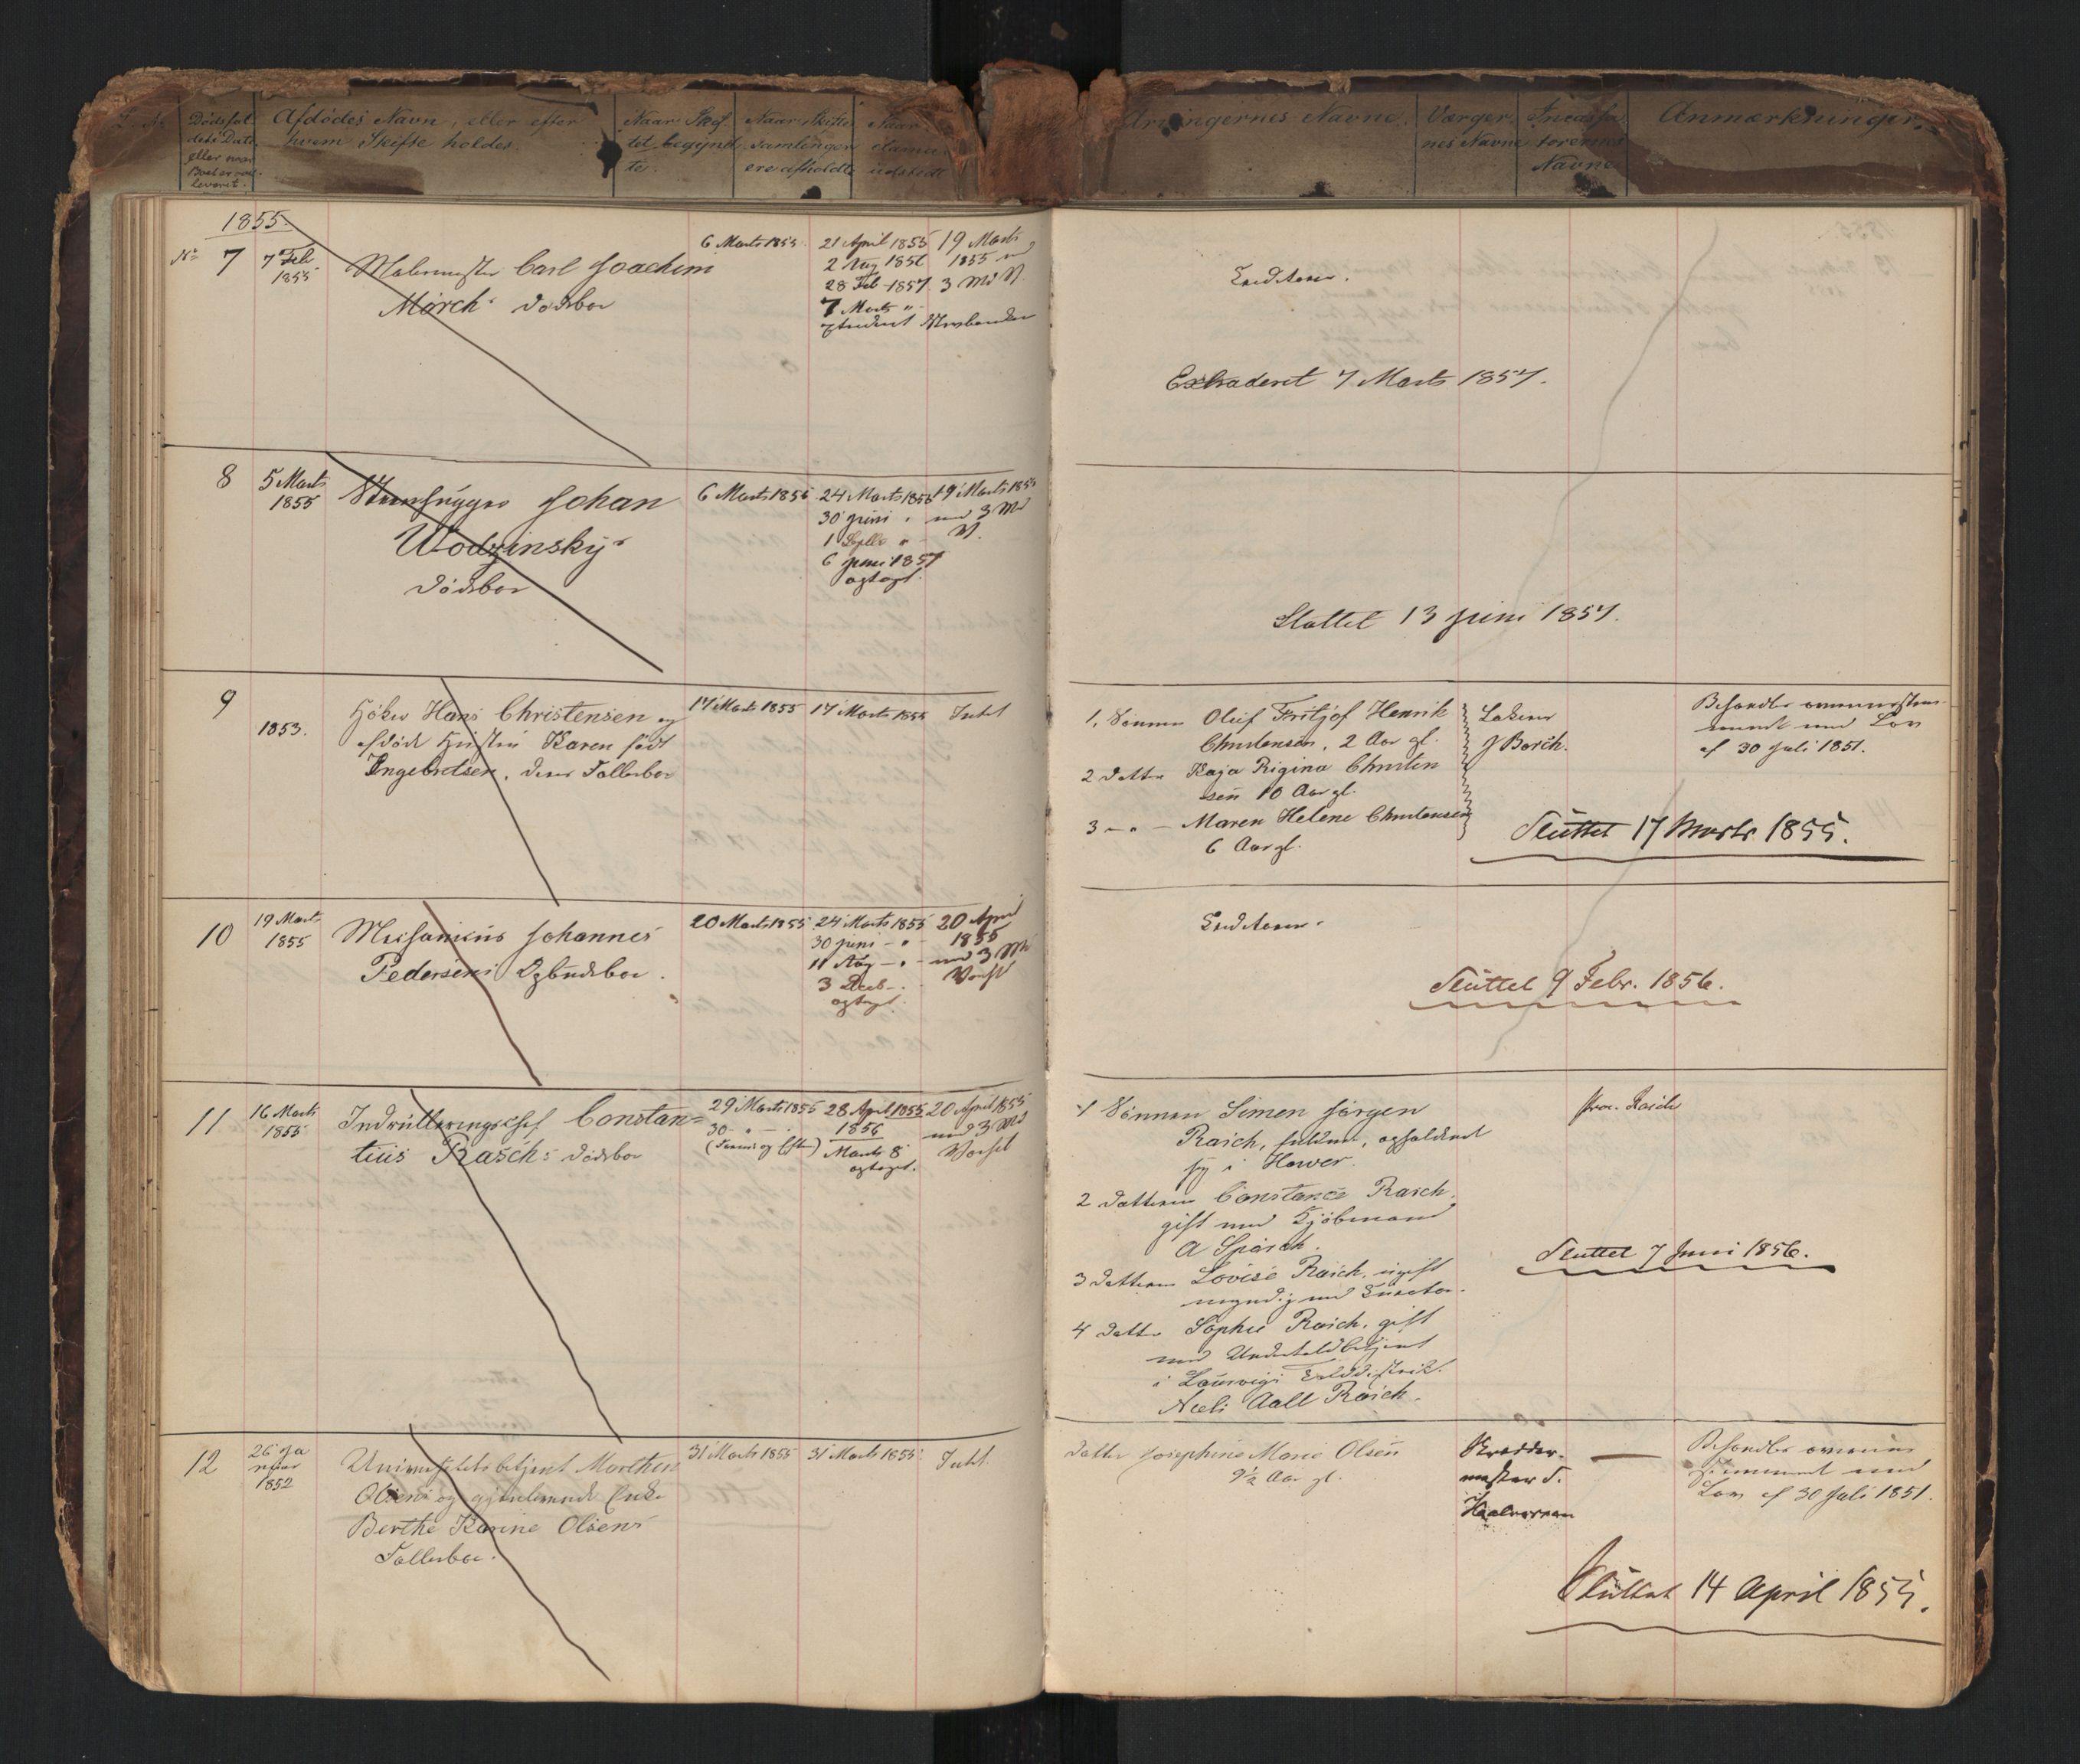 Dødsfal
dets Dato
eller naar
Boet er over
leveret.
Afdødes Navn, eller efter
hvem Skifte holdes.
Naar Skif
tet begynd
te.
Naar Skifte
samlinger
ere afholdte
Naar
udstedt
Arvingernes Navne.
Værger
nes Navne
Incassa
torernes
Navne
Anmærkninger.
1855.
No 7
7 Feb
1855
Malermester Carl Joachim
Mørchs Dødsbo
6 Marts 1855
21 April 1855
2 Aug 1856
28 Feb 1857
7 Marts "
extraderet
19 Marts
1855 med
3 Md V.
Creditorer.
Extraderet 7 Marts 1857.
8
5 Marts
1855
Steenhugger Johan
Wodzinsky's
Dødsbo
6 Marts 1855
24 Marts 1855
30 Juni "
6 Juni 1857
optaget.
19 Marts 1855
med 3 Md
V.
Sluttet 13 Juni 1857.
9
1853.
Høker Hans Christensen og
afdøde Hustru Karen født
Ingebretsen, deres Fællesbo
17 Marts 1855
17 Marts 1855
Intet
1, Sønnen Oluf Fritjof Henrik
Christensen, 2 Aar gl.
2 Datter Kaja Rigina Christen
sen 10 Aar gl.
3 - " - Maren Helene Christensen
6 Aar gl.
J Borch.
Behandles overeensstem
mende med Lov
af 30 Juli 1851.
Sluttet 17 Marts 1855.
10
19 Marts
1855
Mechanicus Johannes
Pedersens Opbudsbo.
20 Marts 1855
24 Marts 1855
30 Juni - " -
11 Aug - " -
3 Decb -
optaget.
20 April
1855
med 3 Md
Varsel
Creditorer.
Sluttet 9 Febr. 1856.
11
16 Marts
1855
Indrulleringschef Constan=
tius Raschs Dødsbo
29 Marts 1855
30 - " -
28 April 1855
1856
Marts 8
optaget.
20 April 1855
med 3 Md
Varsel
1 Sønnen Simen Jørgen
Rasch, fuldm., opholdend
sig i Hawer.
2 Datteren Constance Rasch.
gift med Kjøbmand
A Spärck.
3 Datteren Lovise Rasch, ugift
myndig med Curator.
4 Datter Sophie Rasch, gift
med Undertoldbetjent
i Laurvigs Tolddistrikt.
Niels Aall Rasch.
Proc. Rasch
Sluttet 7 Juni 1856.
12
26 Ja
nuar
1852
Universitetsbetjent Morthen
Olsens og gjenlevende Enke
Berthe Karine Olsens
Fællesbo.
31 Marts 1855
31 Marts 1855
Intet
Datter Josephine Marie Olsen
9½ Aar gl.
Skrædder-
mester T.
Halvorsen
Behandles overeens
stemmende med
Lov af 30 Juli 1851.
Sluttet 14 April 1855.